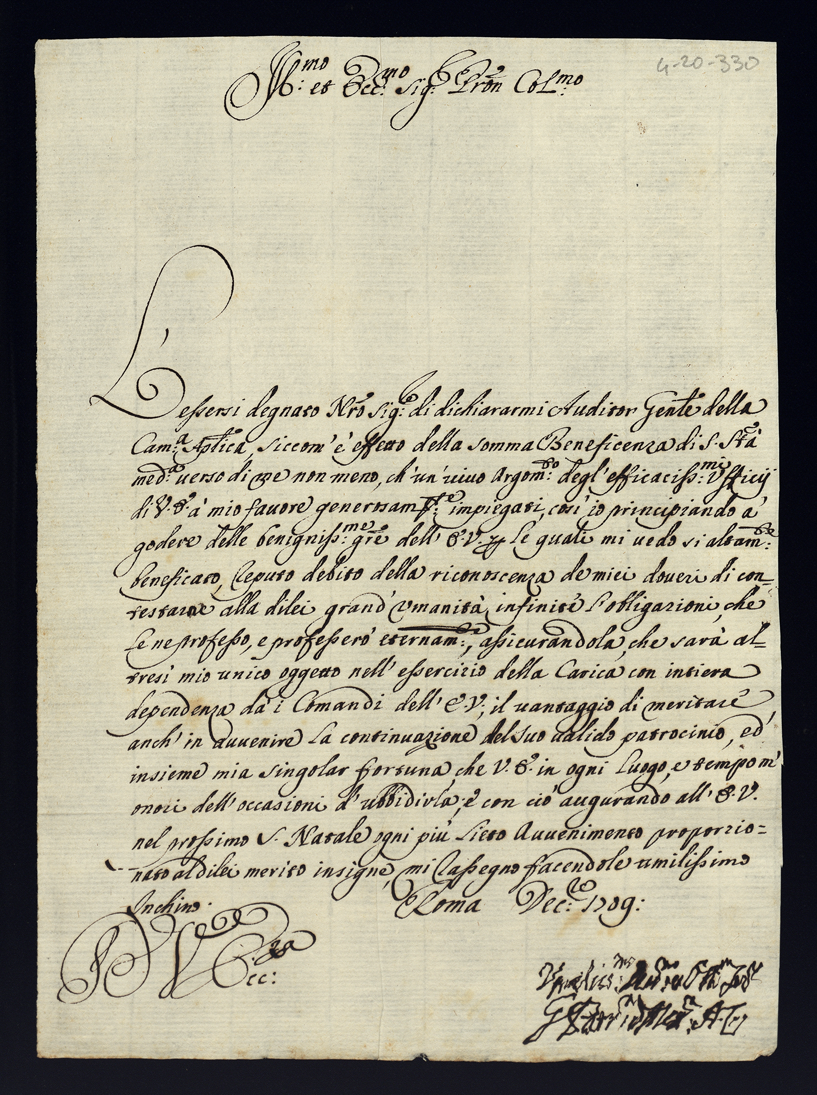 4-20-330
Ill:mo et Ecc:mo Sig:re Pron Col:mo
L'essersi degnato Nro Sig:re di dichiararmi Auditor Genle della
Cam:a Aplica, siccom'è effetto della somma Beneficenza di S. Stà
med:a verso di me non meno, ch'un'vivo Argom:to degl'efficaciss:mi Vfficij
di V.E. à mio favore generosam:te impiegati, così io principiando à
godere delle beniniss:me gre dell'E.V. le quali mi vedo si altam:te
beneficato, Reputo debito della riconoscenza de miei doveri di con-
testarne alla dilei grand'Vmanità infinite l'obligazioni, che
Le ne professo, e professerò eternam:te, assicurandola, che sarà al-
tresì mio unico oggetto nell'essercizio della Carica con intiera
dependenza dà i Comandi dell'E.V., il vantaggio di meritare
anch'in avvenire la continuazione del suo valido patrocinio, ed'
insieme mia singolar fortuna, che V.E. in ogni luogo, e tempo m'
onori dell'occasioni d'ubbidirla, e con ciò augurando all'E.V.
nel prossimo S. Natale ogni più lieto Avvenimento proporzio=
nato al dilei merito insigne, mi Rassegno facendole umilissimo
Inchino. Roma Dec:re 1709:
D V Ecc:za